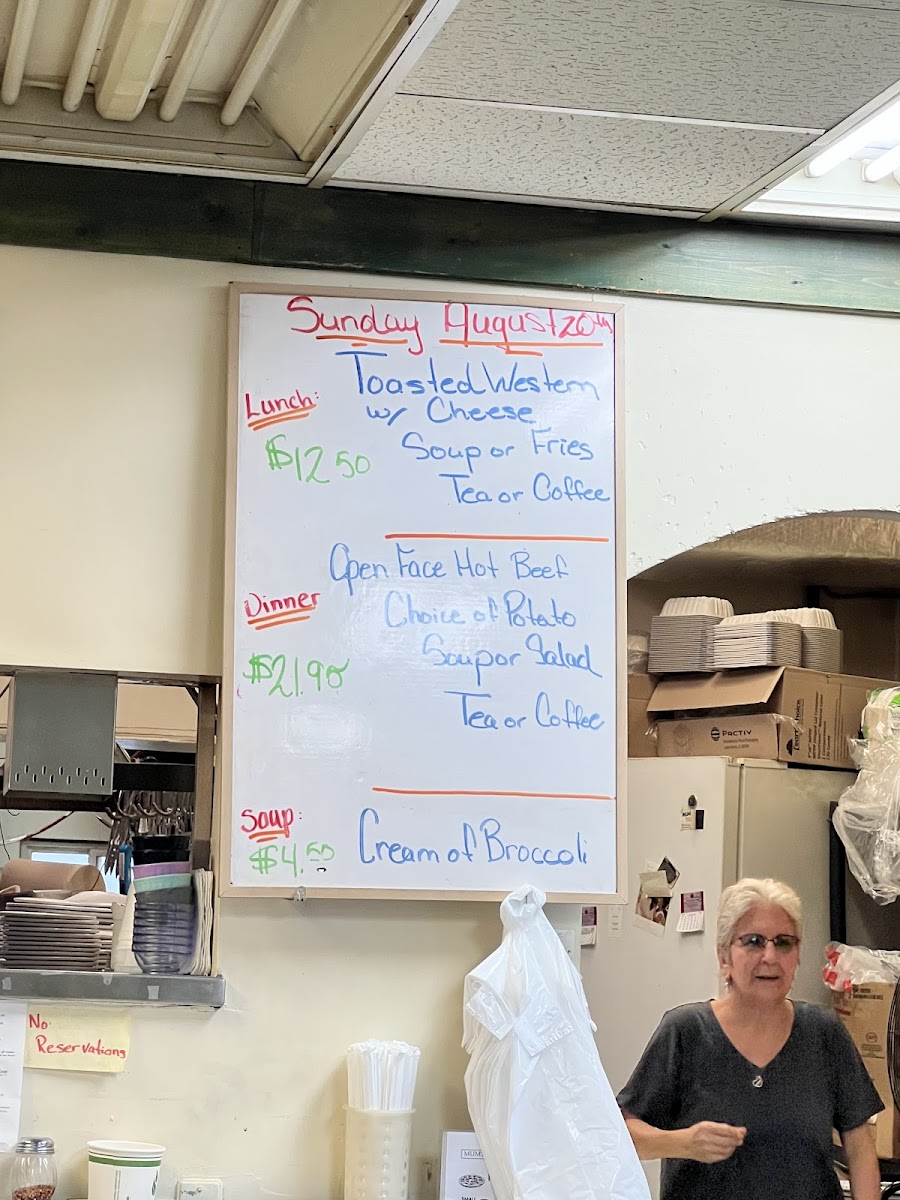 Sunday August 20th
Lunch:
Toasted Western
w/ Cheese
$12.50
Soup or Fries
Tea or Coffee
Dinner
Open Face Hot Beef
Choice of Potato
$21.90
Soup or Salad
Tea or Coffee
Soup:
$4.50
Cream of Broccoli
PACTIV
No
Reservations